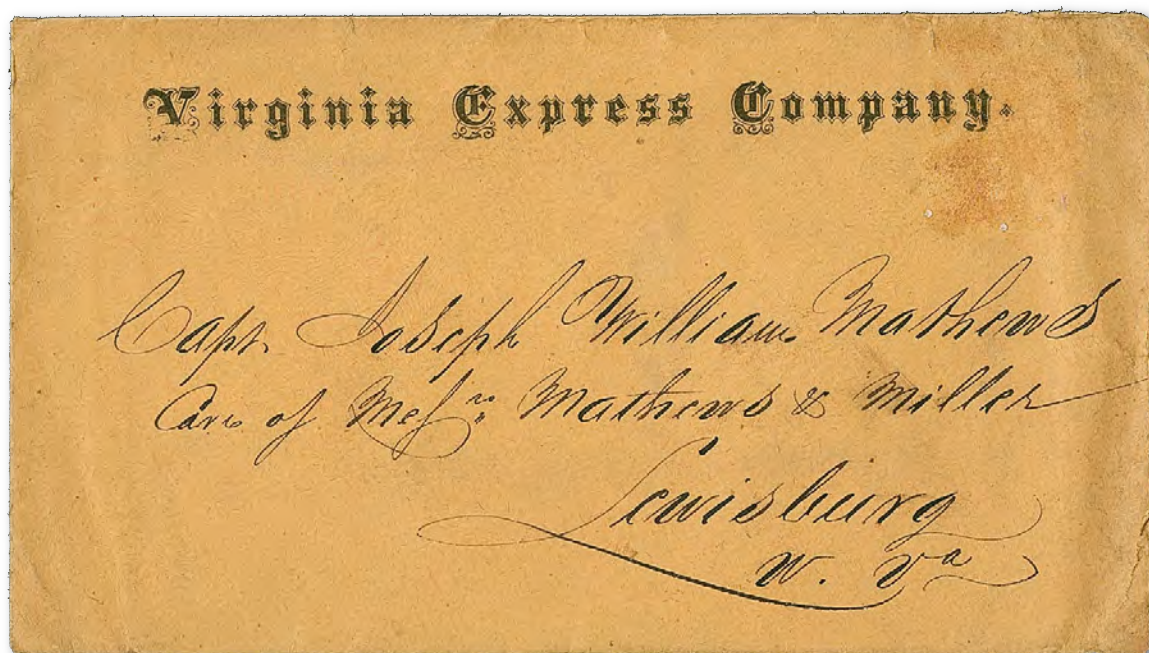 Virginia Express Company.
Capt. Joseph William Mathews
Care of Mess⁠rs Mathews & Miller
Lewisburg
W. Va